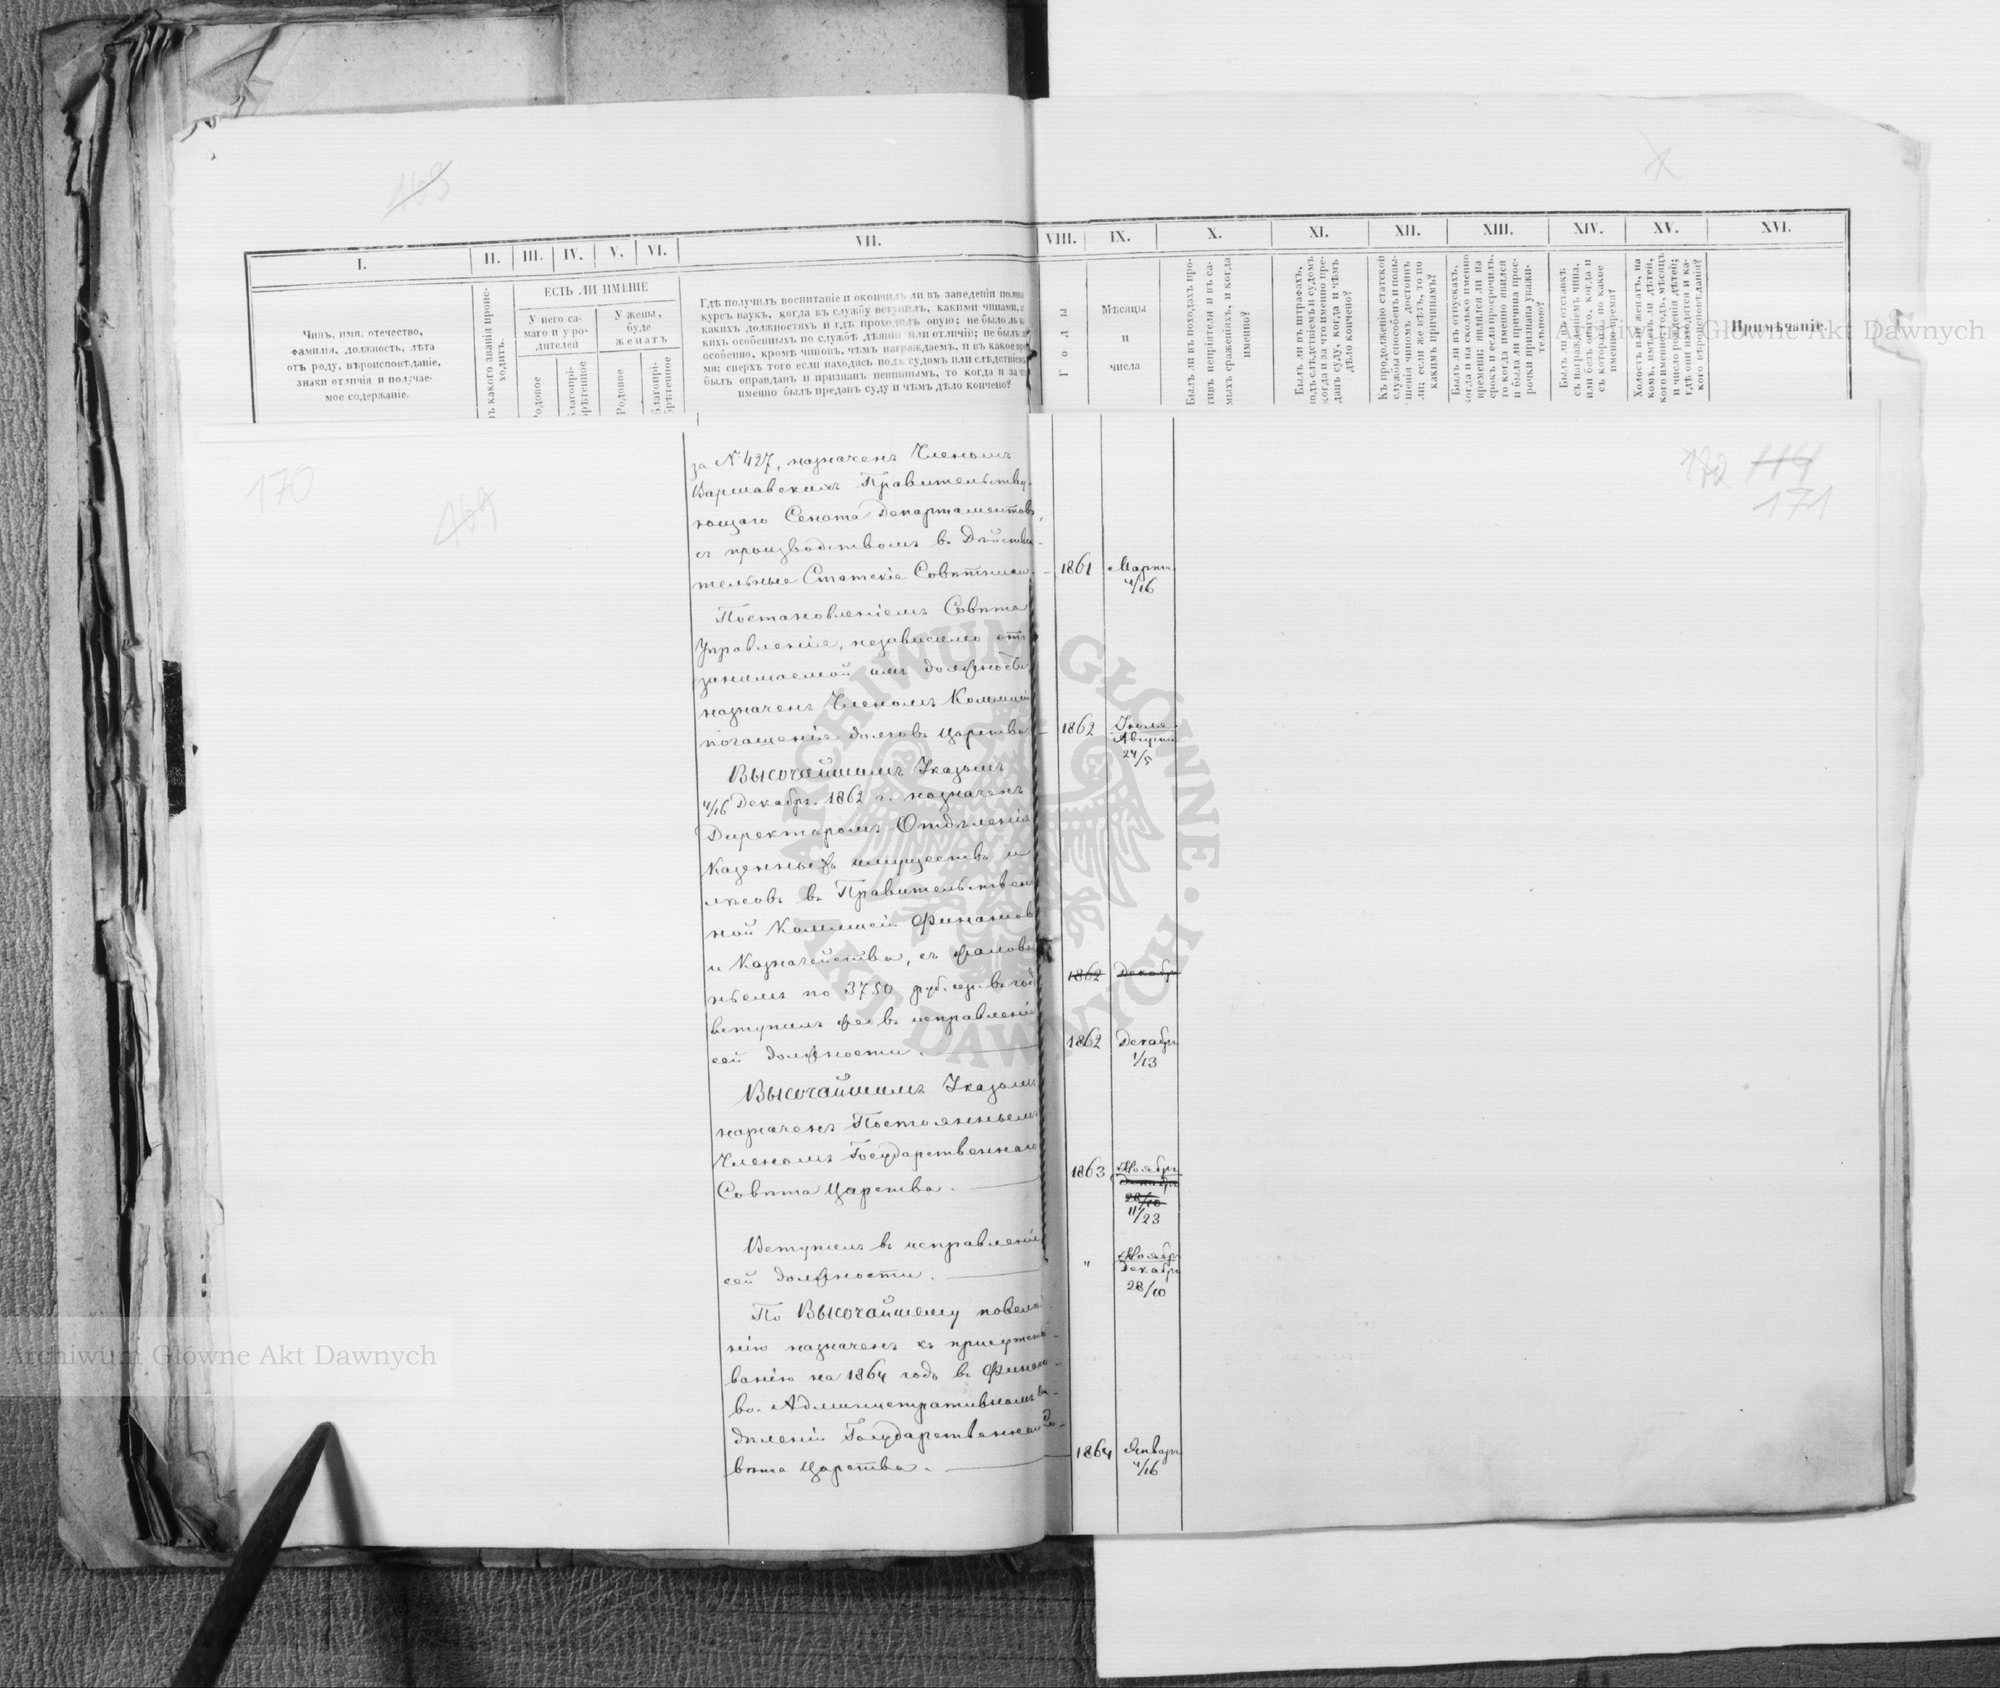 169
I.
II.
III.
IV.
V.
VI.
VII.
VIII.
IX.
X.
XI.
XII.
XIII.
XIV.
XV.
XVI.
Чинъ, имя, отечество,
фамилія, должность, лѣта
отъ роду, вѣроисповѣданіе,
знаки отличія и получае-
мое содержаніе.
Изъ какого званія проис-
ходитъ.
ЕСТЬ ЛИ ИМѢНІЕ
У него са-
маго и у ро-
дителей
У жены,
буде
женатъ
Родовое
Благопрі-
обрѣтенное
Родовое
Благопрі-
обрѣтенное
Гдѣ получилъ воспитаніе и окончилъ ли въ заведеніи полный
курсъ наукъ, когда въ службу вступилъ, какими чинами, въ
какихъ должностяхъ и гдѣ проходилъ оную; не было ли ка-
кихъ особенныхъ по службѣ дѣяній или отличій; не былъ ли
особенно, кромѣ чиновъ, чѣмъ награждаемъ, и въ какое вре-
мя; сверхъ того если находясь подъ судомъ или слѣдствіемъ
былъ оправданъ и признанъ невиннымъ, то когда и за что
именно былъ преданъ суду и чѣмъ дѣло кончено?
Годы
Мѣсяцы
и
числа
Былъ ли въ походахъ про-
тивъ непріятеля и въ са-
мыхъ сраженіяхъ, и когда
именно?
Былъ ли въ штрафахъ,
подъ слѣдствіемъ и судомъ
когда и за что именно пре-
данъ суду, когда и чѣмъ
дѣло кончено?
Къ продолженію статской
службы способенъ и повы-
шенія чиномъ достоинъ
ли; если же нѣтъ, то по
какимъ причинамъ?
Былъ ли въ отпускахъ,
когда и на сколько именно
времени; явился ли на
срокъ и если просрочилъ,
то когда именно явился
и была ли причина прос-
рочки признана уважи-
тельною?
Былъ ли въ отставкѣ
съ награжденіемъ чина,
или безъ онаго, когда и
съ котораго по какое
именно время?
Холостъ или женатъ, на
комъ, имѣетъ ли дѣтей,
кого именно; годъ, мѣсяцъ
и число рожденія дѣтей;
гдѣ они находятся и ка-
кого вѣроисповѣданія?
Примѣчаніе.
170
169
172 114
171
за № 427, назначенъ Членомъ
Варшавскихъ Правительству-
ющаго Сената Департаментовъ,
съ производствомъ въ Дѣйстви-
тельные Статскіе Совѣтники
1861
Марта
4/16
Постановленіемъ Совѣта
Управленія, независимо отъ
занимаемой имъ должности
назначенъ Членомъ Коммисіи
погашенія долговъ Царства
1862
Іюля
Августа
24/5
Высочайшимъ Указомъ
4/16 Декабр. 1862 г. назначенъ
Директоромъ Отдѣленія
Казенныхъ имуществъ и
лѣсовъ въ Правительствен-
ной Коммисіи Финансовъ
и Казначейства, съ жалова-
ньемъ по 3750 руб. сер. въ годъ
1862
Декабр
вступилъ же въ исправленіе
сей должности.
1862
Декабр
1/13
Высочайшимъ Указомъ
назначенъ Постояннымъ
Членомъ Государственнаго
Совѣта Царства.
1863
Ноябр
Декабр
28/10
11/23
Вступилъ въ исправленіе
сей должности.
"
Ноябр
Декабр
28/10
По Высочайшему повелѣ-
нію назначенъ къ присутство-
ванію на 1864 годъ въ Финансо-
во-Административномъ От-
дѣленіи Государственнаго Со-
вѣта Царства.
1864
Январ
4/16
Archiwum Główne Akt Dawnych
ARCHIWUM GŁÓWNE · AKT DAWNYCH ·
Archiwum Główne Akt Dawnych